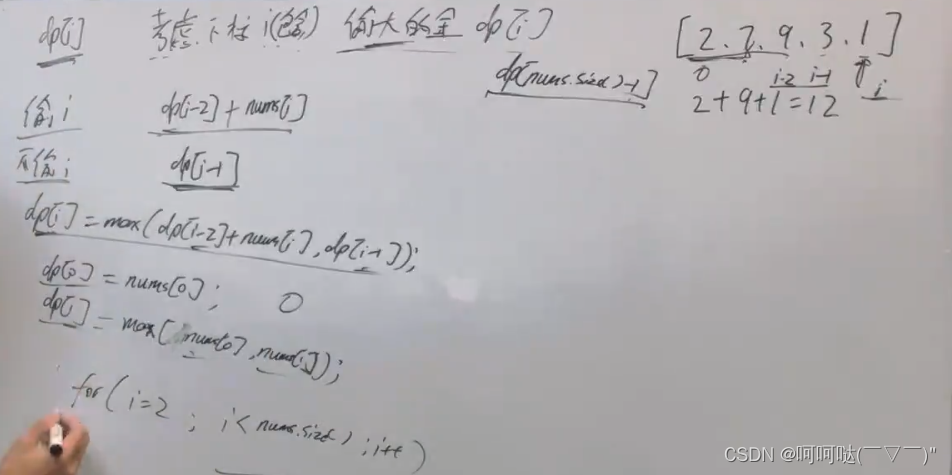 dp[i] 考虑下标i(包含) 偷最大的金 dp[i]
[2.7.9.3.1]
0 i-2 i-1 i
dp[nums.size()-1]
2+9+1=12
偷i dp[i-2]+nums[i]
不偷i dp[i-1]
dp[i]=max(dp[i-2]+nums[i],dp[i-1]);
dp[0]=nums[0]; 0
dp[1]=max(nums[0],nums[1]);
for(i=2;i<nums.size();i++)
CSDN @呵呵哒(￣▽￣)"